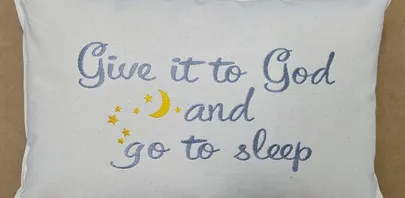 Give it to God
and
go to sleep